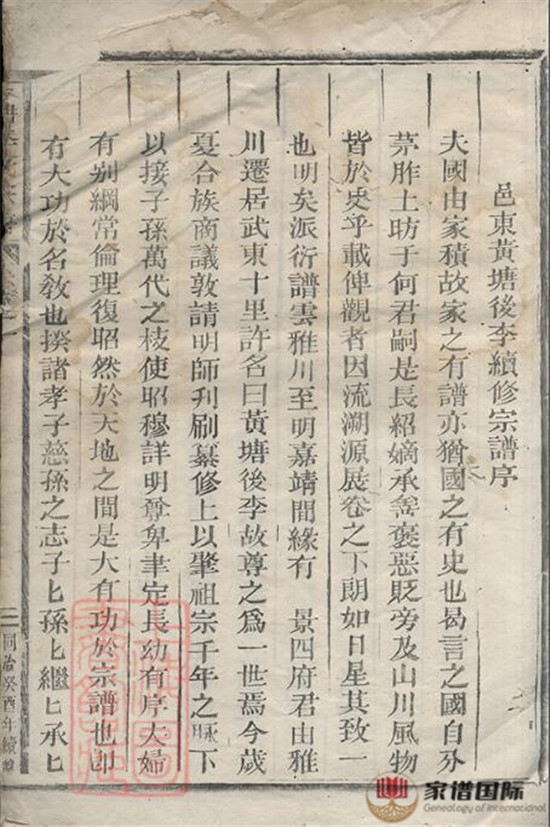 邑東黃塘後李續修宗譜序
夫國由家積故家之有譜亦猶國之有史也曷言之國自分
茅胙土昉于何君嗣是長紹嫡承善褒惡貶旁及山川風物
皆於史乎載俾觀者因流溯源展卷之下朗如日星其致一
也明矣派衍譜雲雅川至明嘉靖間緣有 景四府君由雅
川遷居武東十里許名曰黃塘後李故尊之爲一世焉今歲
夏合族商議敦請明師刋刷纂修上以肇祖宗千年之脈下
以接子孫萬代之枝使昭穆詳明尊卑聿定長幼有序夫婦
有別綱常倫理復昭然於天地之間是大有功於宗譜也即
有大功於名敎也揆諸孝子慈孫之志子匕孫匕繼匕承匕
同治癸酉年續修
家谱国际
Genealogy of International